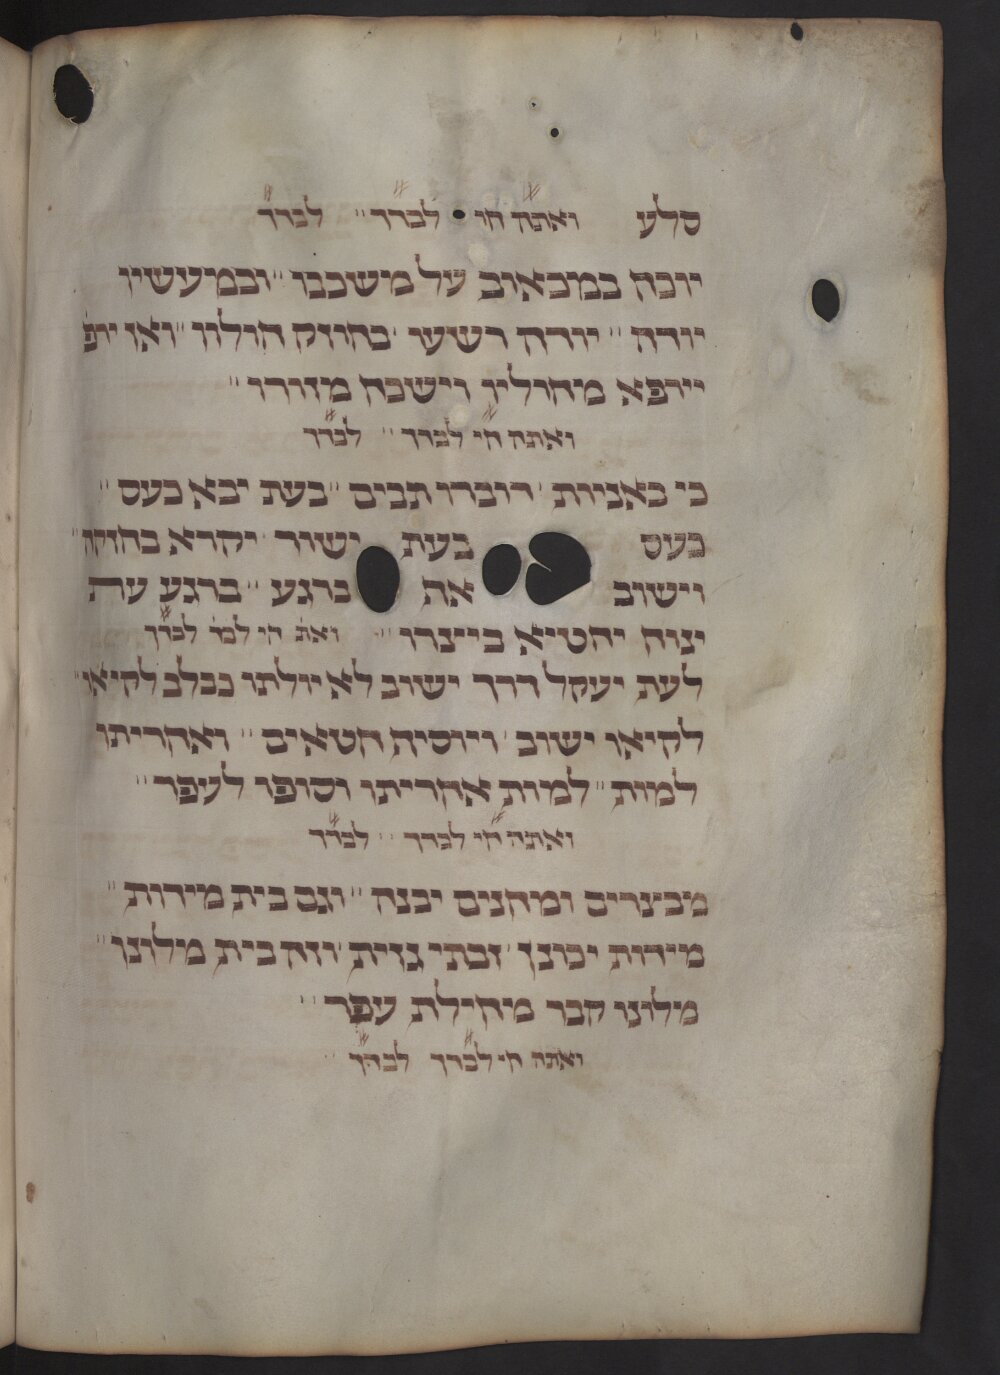 סלע ואתה חי לברך לברך
יוכח במכאוב על משכבו ובמעשיו
יודה יודה רשעו כחזק חוליו ואז ית
יירפא מחוליו וישכח מזורו
ואתה חי לברך לברך
כי באניות רוכבו תבים בעת יבא כעס
כעס בעת ישור יקרא בחזקה
וישוב את ברגע ברגע עת
ינוח יחטיא כייצרו ואת חי לבר לברך
לעת יעקל דרך ישוב לא יולתו ככלב לקיאו
לקיאו ישוב ויוסיף חטאים ואחריתו
למות למות אחריתו וסופו לעפר
ואתה חי לברך לברך
מבצרים ומחנים יבנה וגם בית מידות
מידות יכונן ובתי גזית וזה בית מלונו
מלונו קבר מחילת עפר
ואתה חי לברך לברך